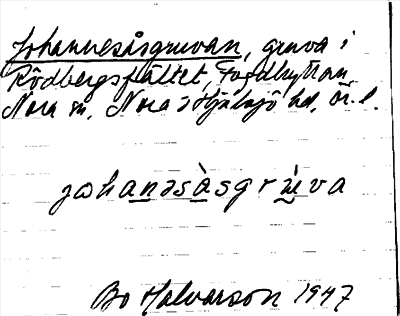 Johannesåsgruvan, gruva i
Rödbergsfältet, Fogdhyttan
Nora sn, Nora o Hjulsjö hd, Ör. l.
johanəsàsgrùva
Bo Halvarson 1947